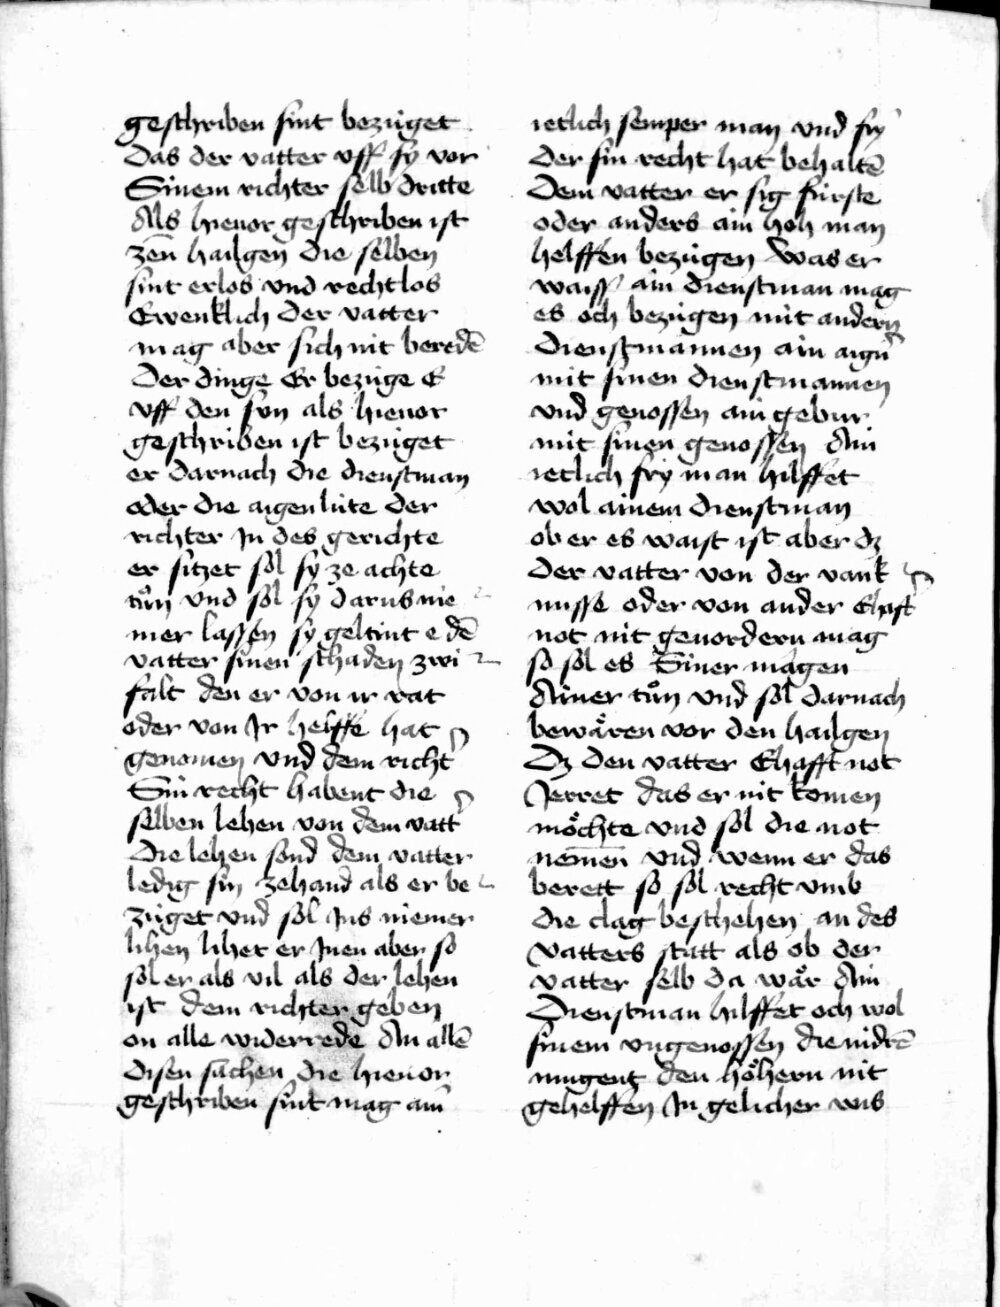 geschriben sint bezüget
Das der vatter vff sy vor
Sinem richter selb dritte
Als hievor geschriben ist
zen̄ hailgen die selben
sint erlos vnd rechtlos
Ewenklich Der vatter
mag aber sich nit beredē
Der dinge Er bezüge E
vff den sün als hievor
geschriben ist bezüget
er darnach die dienstman
oder die aigen lüte der
richter In des gerichte
er sitzet sol sy ze achte
tůn vnd sol sy darus nie
mer lassen sy geltint e dē
vatter sinen schaden zwi
falt den er von ir rat
oder von Ir helffe hat
genomen vnd dem richt
Sin recht habent die
selben lehen von dem vatt
Die lehen sond dem vatter
ledig sin zehand als er be
züget vnd sol Ins niemer
lihen lihet er Inen aber so
sol er als vil als der lehen
ist dem richter geben
on alle widerrede An allē
disen sachen die hievor
geschriben sint mag ain
ietlich semper man vnd fry
der sin recht hat behaltē
Dem vatter er sig fürste
oder anders ain hoh man
helffen bezügen Was er
waiss ain dienstman mag
es och bezügen mit andern
Dienstmannen ain aign
mit sinen dienstmannen
vnd genossen ain gebur
mit sinen genossen Ain
ietlich fry man hilffet
wol ainem dienstman
ob er es waist ist aber dz
der vatter von der vank
nusse oder von ander Ehaft
not nit gevordern mag
so sol es Siner magen
Ainer tůn vnd sol darnach
bewären vor den hailgen
Dz den vatter Ehafft not
Jerret das er nit komen
möchte vnd sol die not
nem̄en vnd wenn er das
berett so sol recht vmb
die clag beschehen an des
vatters statt als ob der
vatter selb da wär Ain
Dienstman hilffet och wol
sinem vngenossen die nidrē
mugent den höhern nit
gehelffen In gelicher wis